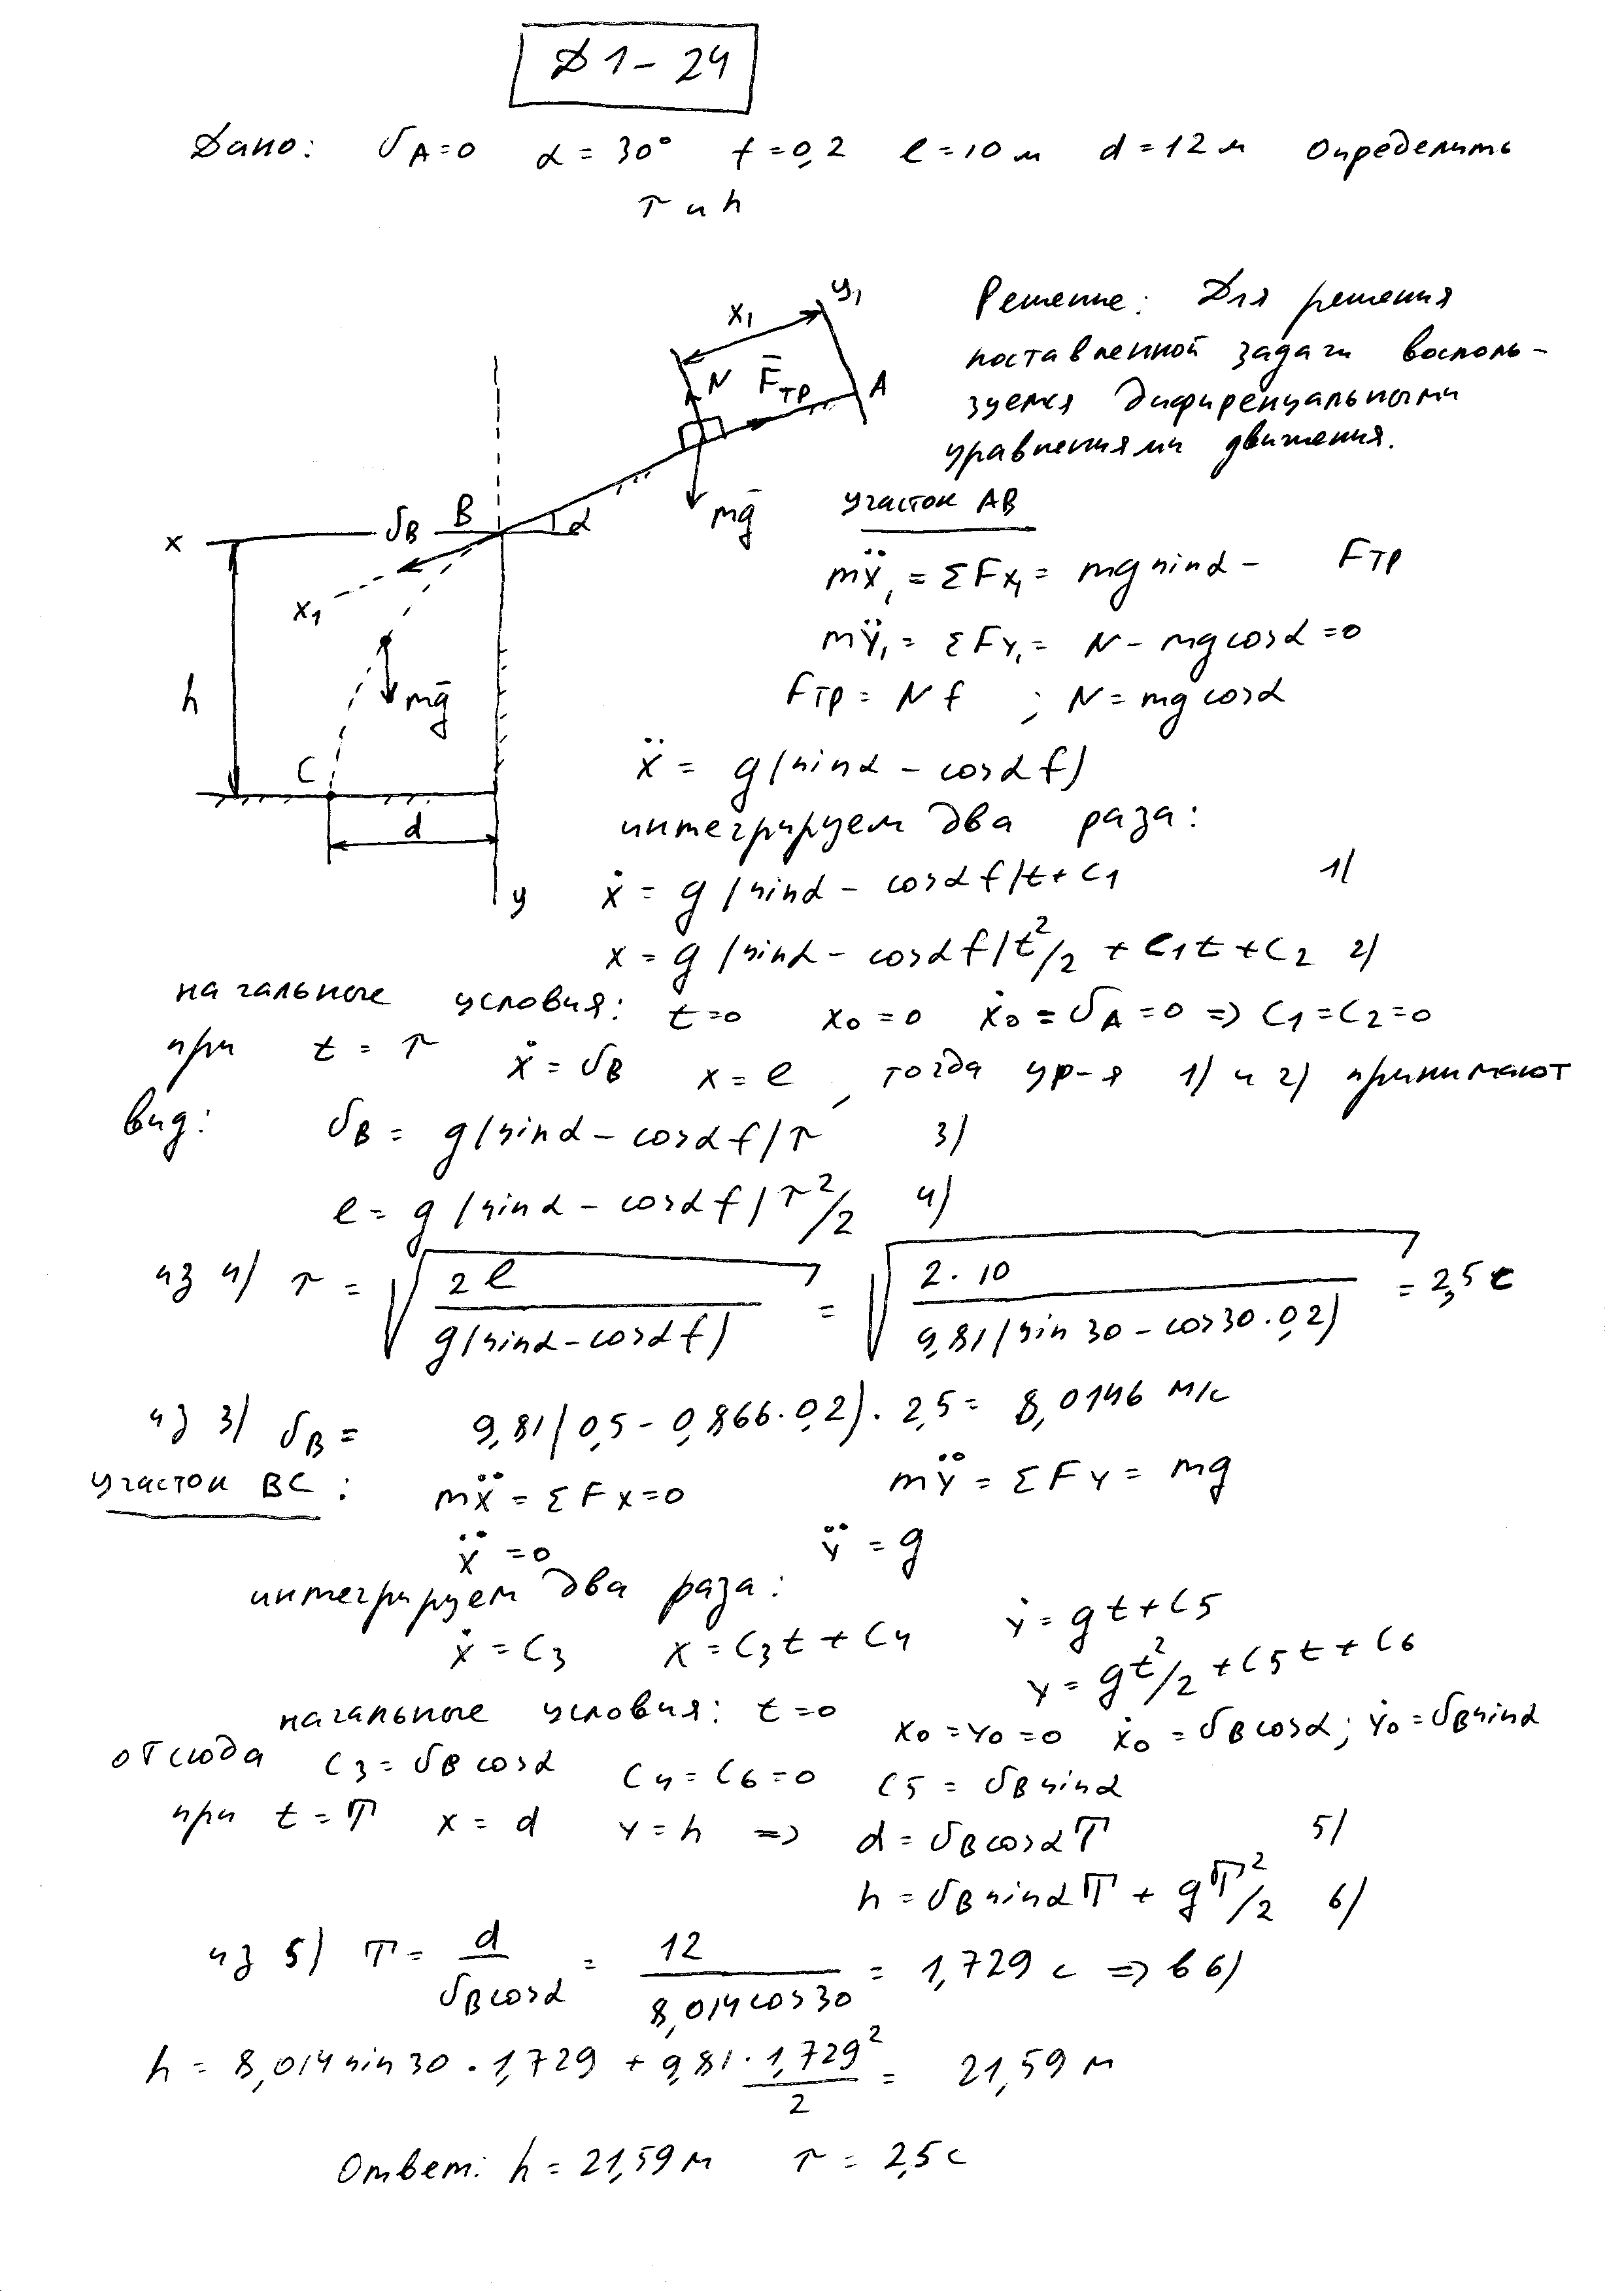 Д1-24
Дано: υA=0 α=30° f=0,2 ℓ=10м d=12м Определить
τ и h
Решение: Для решения
поставленной задачи восполь-
зуемся дифиренцуальными
уравнениями движения.
y1
x1
N F̅тр A
mg̅
x υB B α
x1
h
mg̅
C
d
y
участок AB
mẍ1 = ΣFx1 = mg sinα - Fтр
mÿ1 = ΣFy1 = N - mg cosα = 0
Fтр = Nf ; N = mg cosα
ẍ = g(sinα - cosα f)
интегрируем два раза:
ẋ = g(sinα - cosα f)t + C1 1)
x = g(sinα - cosα f)t²/2 + C1t + C2 2)
начальные условия: t=0 x0=0 ẋ0=υA=0 => C1=C2=0
при t=τ ẋ=υB x=ℓ, тогда ур-я 1) и 2) принимают
вид: υB = g(sinα - cosα f)τ 3)
ℓ = g(sinα - cosα f)τ²/2 4)
из 4) τ = √(2ℓ / g(sinα - cosα f)) = √(2·10 / 9,81(sin30 - cos30·0,2)) = 2,5 c
из 3) υB = 9,81(0,5 - 0,866·0,2)·2,5 = 8,0146 м/с
участок BC: mẍ = ΣFx = 0 mÿ = ΣFy = mg
ẍ = 0 ÿ = g
интегрируем два раза:
ẋ = C3 x = C3t + C4 ẏ = gt + C5
y = gt²/2 + C5t + C6
начальные условия: t=0 x0=y0=0 ẋ0=υB cosα; ẏ0=υB sinα
отсюда C3=υB cosα C4=C6=0 C5=υB sinα
при t=T x=d y=h => d=υB cosα T 5)
h=υB sinα T + gT²/2 6)
из 5) T = d / υB cosα = 12 / 8,014 cos30 = 1,729 c => в 6)
h = 8,014 sin30·1,729 + 9,81·1,729²/2 = 21,59 м
Ответ: h = 21,59 м τ = 2,5 c